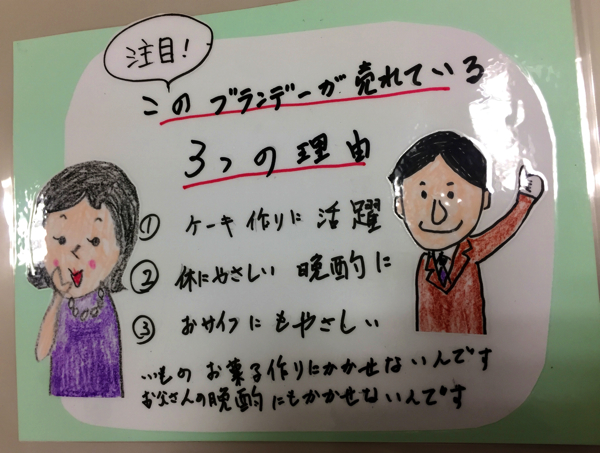 注目!
このブランデーが売れている
3つの理由
① ケーキ作りに活躍
② 体にやさしい 晩酌に
③ おサイフにもやさしい
いものお菓子作りにかかせないんです
お父さんの晩酌にもかかせないんです